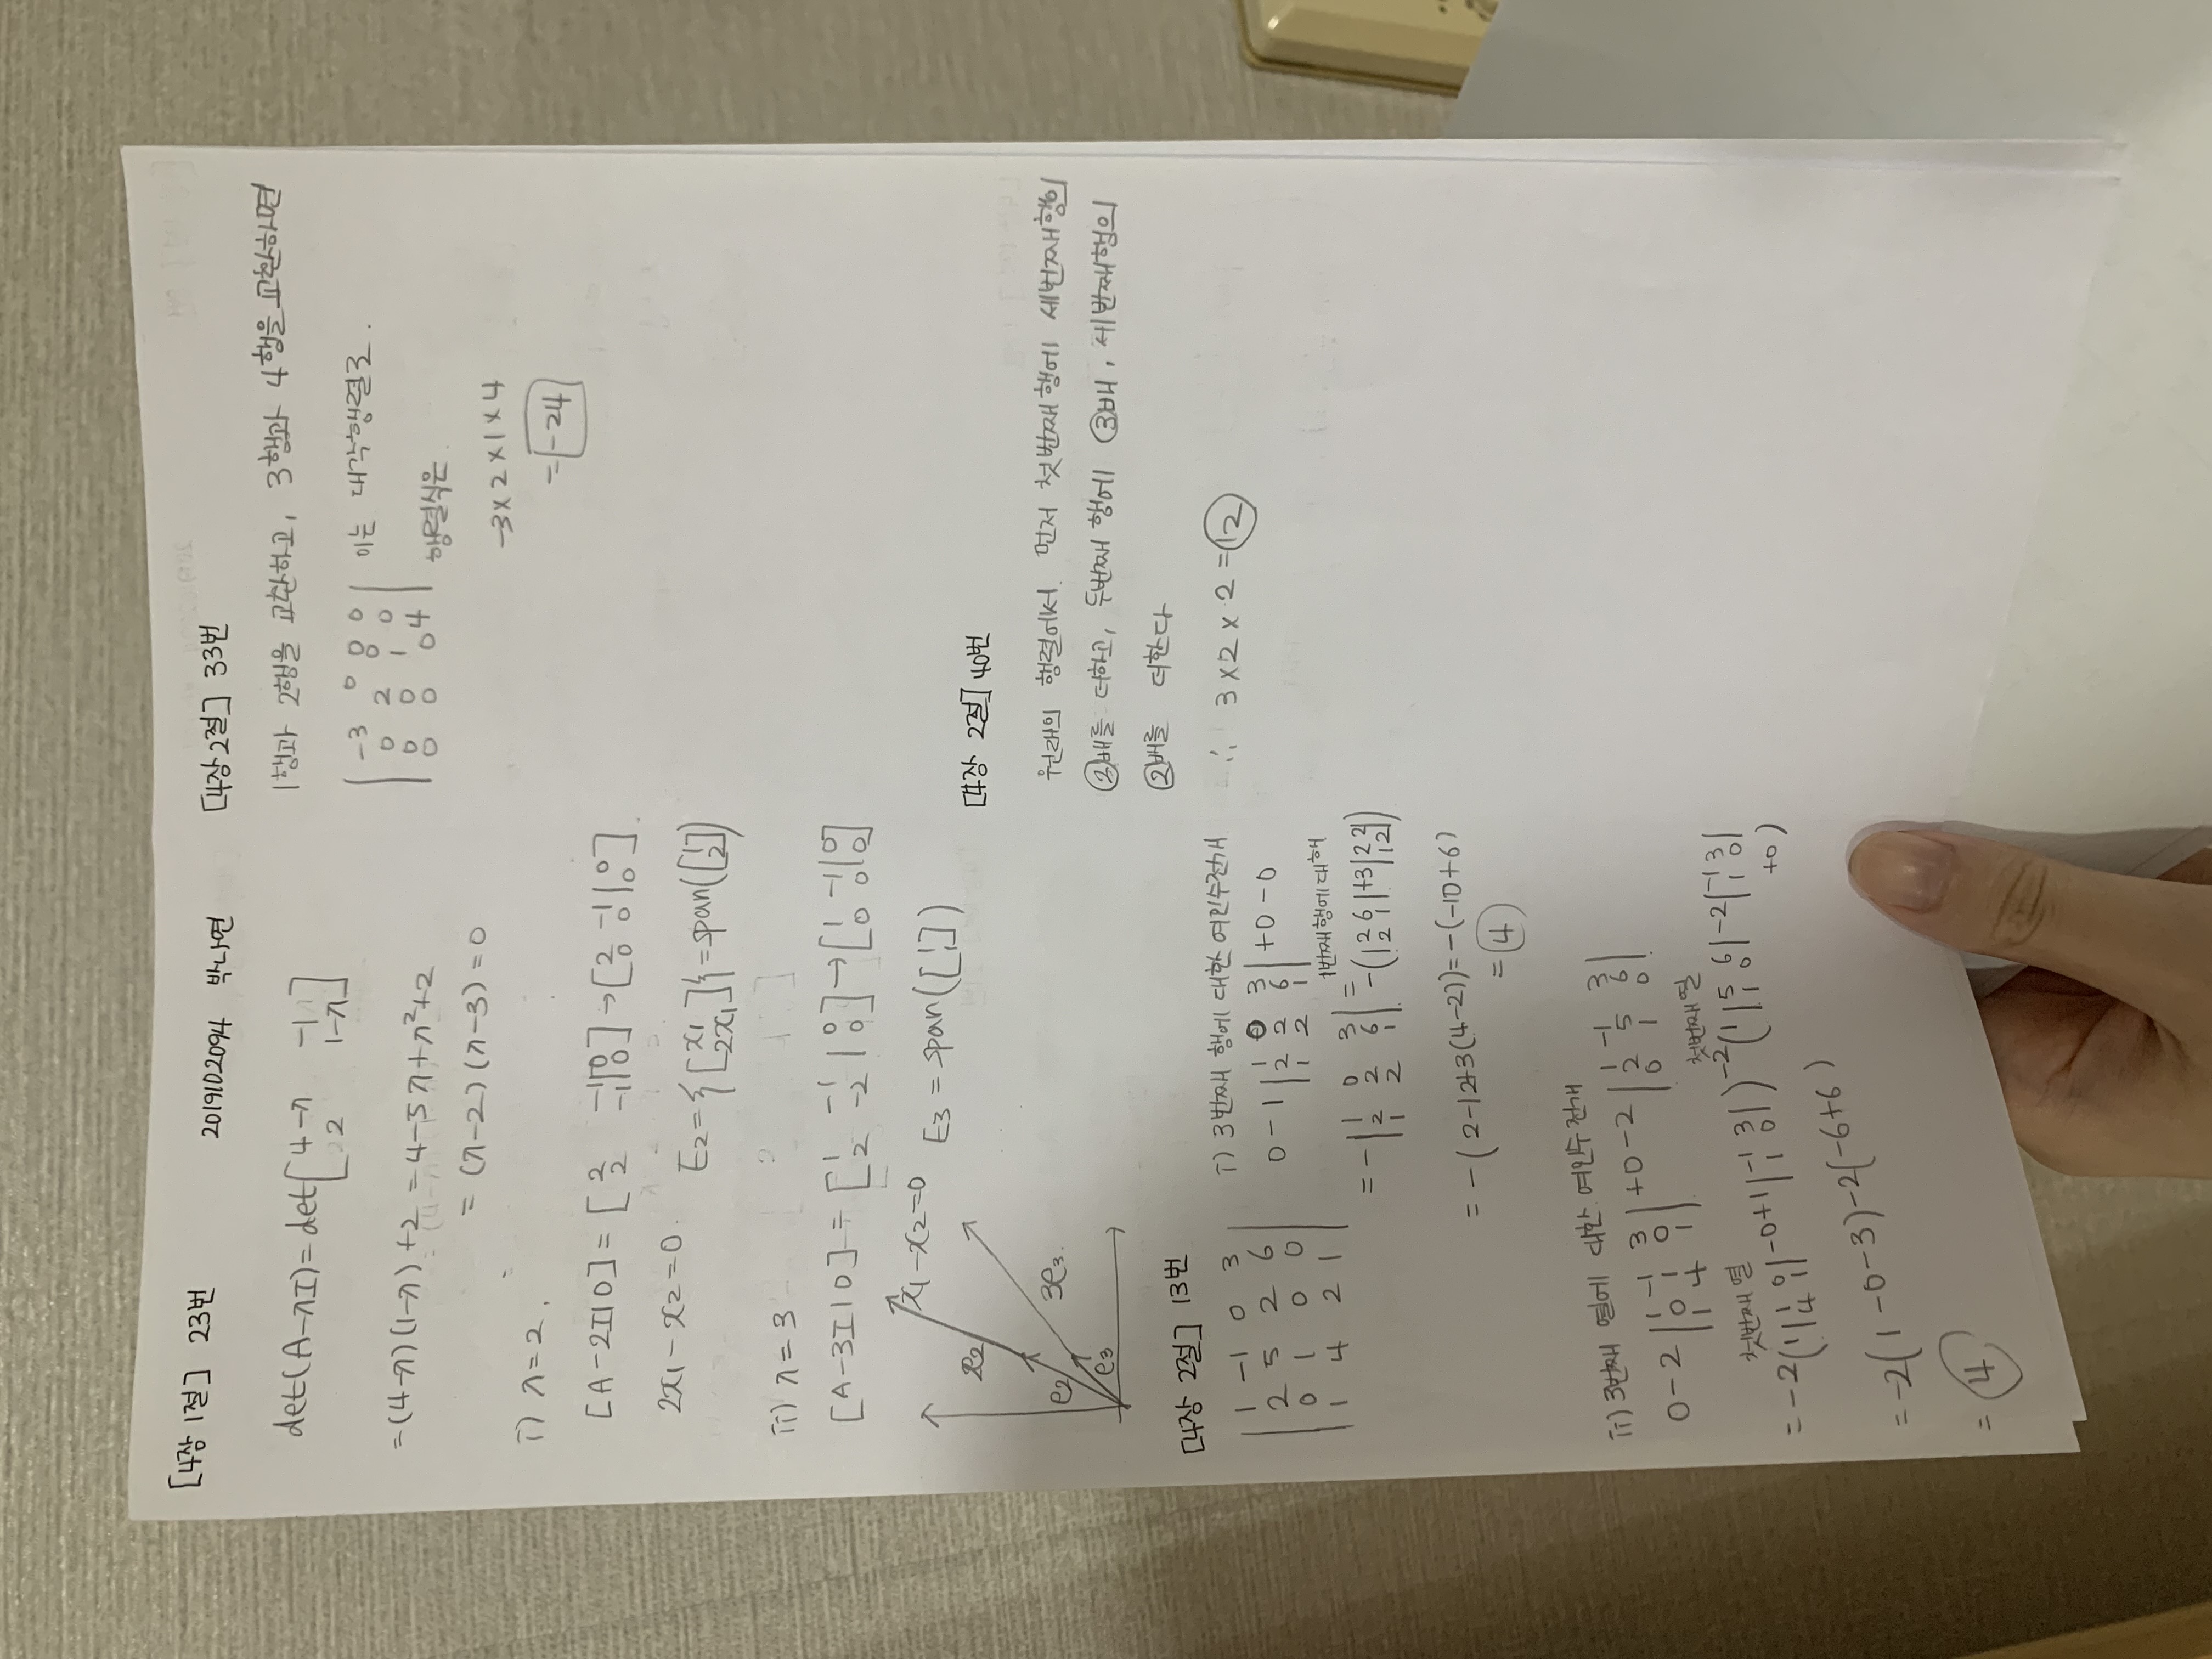 [4장 1절] 23번
2019102094 박나연
det(A-λI)=det[4-λ -1
2 1-λ]
=(4-λ)(1-λ)+2 =4-5λ+λ²+2
=(λ-2)(λ-3)=0
i) λ=2,
[A-2I|0]=[2 -1|0 →[2 -1|0
2 -1|0] 0 0|0].
2x₁-x₂=0.
E₂={[x₁
2x₁]}=span([1
2])
ii) λ=3
[A-3I|0]=[1 -1|0 →[1 -1|0
2 -2|0] 0 0|0]
x₁-x₂=0
E₃=span([1
1])
e₂
e₂
3e₃.
e₃
[4장 2절] 13번
1 -1 0 3
2 5 2 6
0 1 0 0
1 4 2 1
i) 3번째 행에 대한 여인수전개
0-1|1 0 3
2 2 6
1 2 1|+0-0
1번째행에대해
=-|1 0 3
2 2 6
1 2 1|=-(|2 6
2 1|+3|2 2
1 2|)
=-(2-12+3(4-2))=-(-10+6)
=4
ii) 3번째 열에 대한 여인수전개
0-2|1 -1 3
0 1 0
1 4 1|+0-2|1 -1 3
2 5 6
0 1 0|
첫번째 열
첫번째 열
=-2(1|1 0
4 1|-0+1|-1 3
1 0|)-2(1|5 6
1 0|-2|-1 3
1 0|
+0)
=-2(1-0-3)-2(-6+6)
=4
[4장 2절] 33번
1행과 2행을 교환하고, 3행과 4행을 교환하면
-3 0 0 0
0 2 0 0
0 0 1 0
0 0 0 4
이는 대각행렬로.
행렬식은.
-3×2×1×4
=-24
[4장 2절] 40번
원래의 행렬에서. 먼저 첫번째행에 세번째행의
②배를 더하고, 두번째 행에 ③배, 세번째행의
②배를 더한다
∴ 3×2×2=12